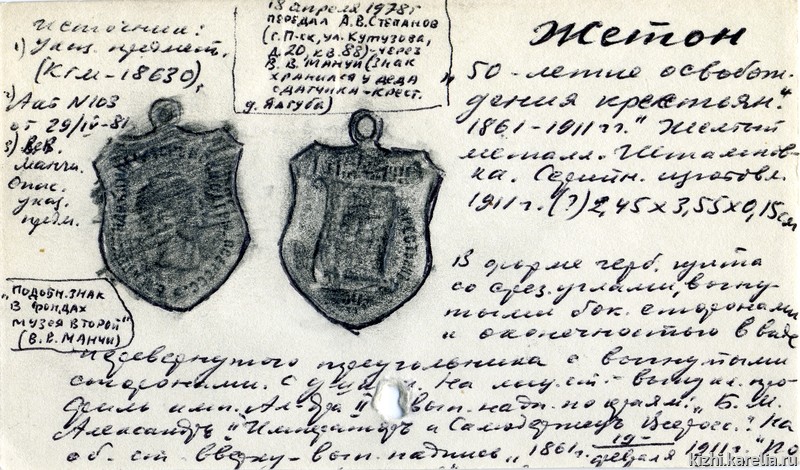 Источники:
1) Указ. предмет.
(КГМ-18630),
2) Акт N103
от 29/IV-81
3) В.В.
Манчи.
Опис.
указ.
предм.
18 апреля 1978г
передал А.В. Степанов
(г. П-ск, ул. Кутузова,
д. 20, кв. 88) - через
В.В. Манчи (знак
хранился у деда
сдатчика - крест.
д. Ялгуба)
Жетон
"50-летие освобож-
дения крестьян."
1861-1911 гг." Желтый
металл. Штампов-
ка. Серийн. изготовл.
1911 г. (?) 2,45 х 3,55 х 0,15 см
"Подобн. знак
в фондах
музея второй"
(В.В. Манчи)
В форме герб. щита
со срез. углами, выгну
тыми бок. сторонами
и оконечностью в виде
перевернутого треугольника с выгнутыми
сторонами. С ушком. На лиц. ст. - выпукл. про-
филь имп. Ал-дра II вып. надп. по краям: "Б. М.
Александръ II Императоръ и Самодержецъ Всеросс." На
об. ст. вверху - вып. надпись "1861 19 февраля 1911." По
kizhi.karelia.ru